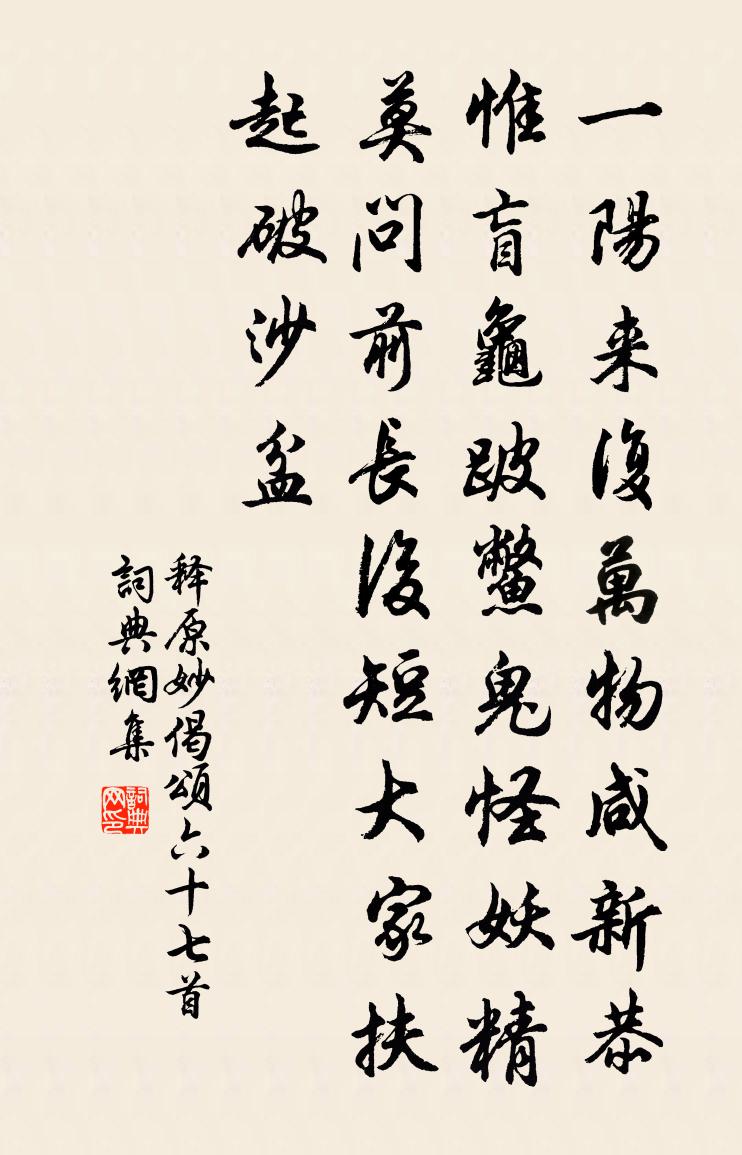 一陽来復萬物咸新恭
惟盲龜跛鱉鬼怪妖精
莫問前長後短大家扶
起破沙盆
释原妙偈頌六十七首
詞典網集
詞典網印